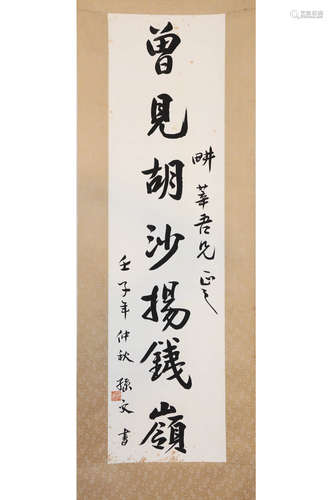 曾見胡沙揚錢嶺
畊莘吾兄正之
壬子年仲秋 孫文書